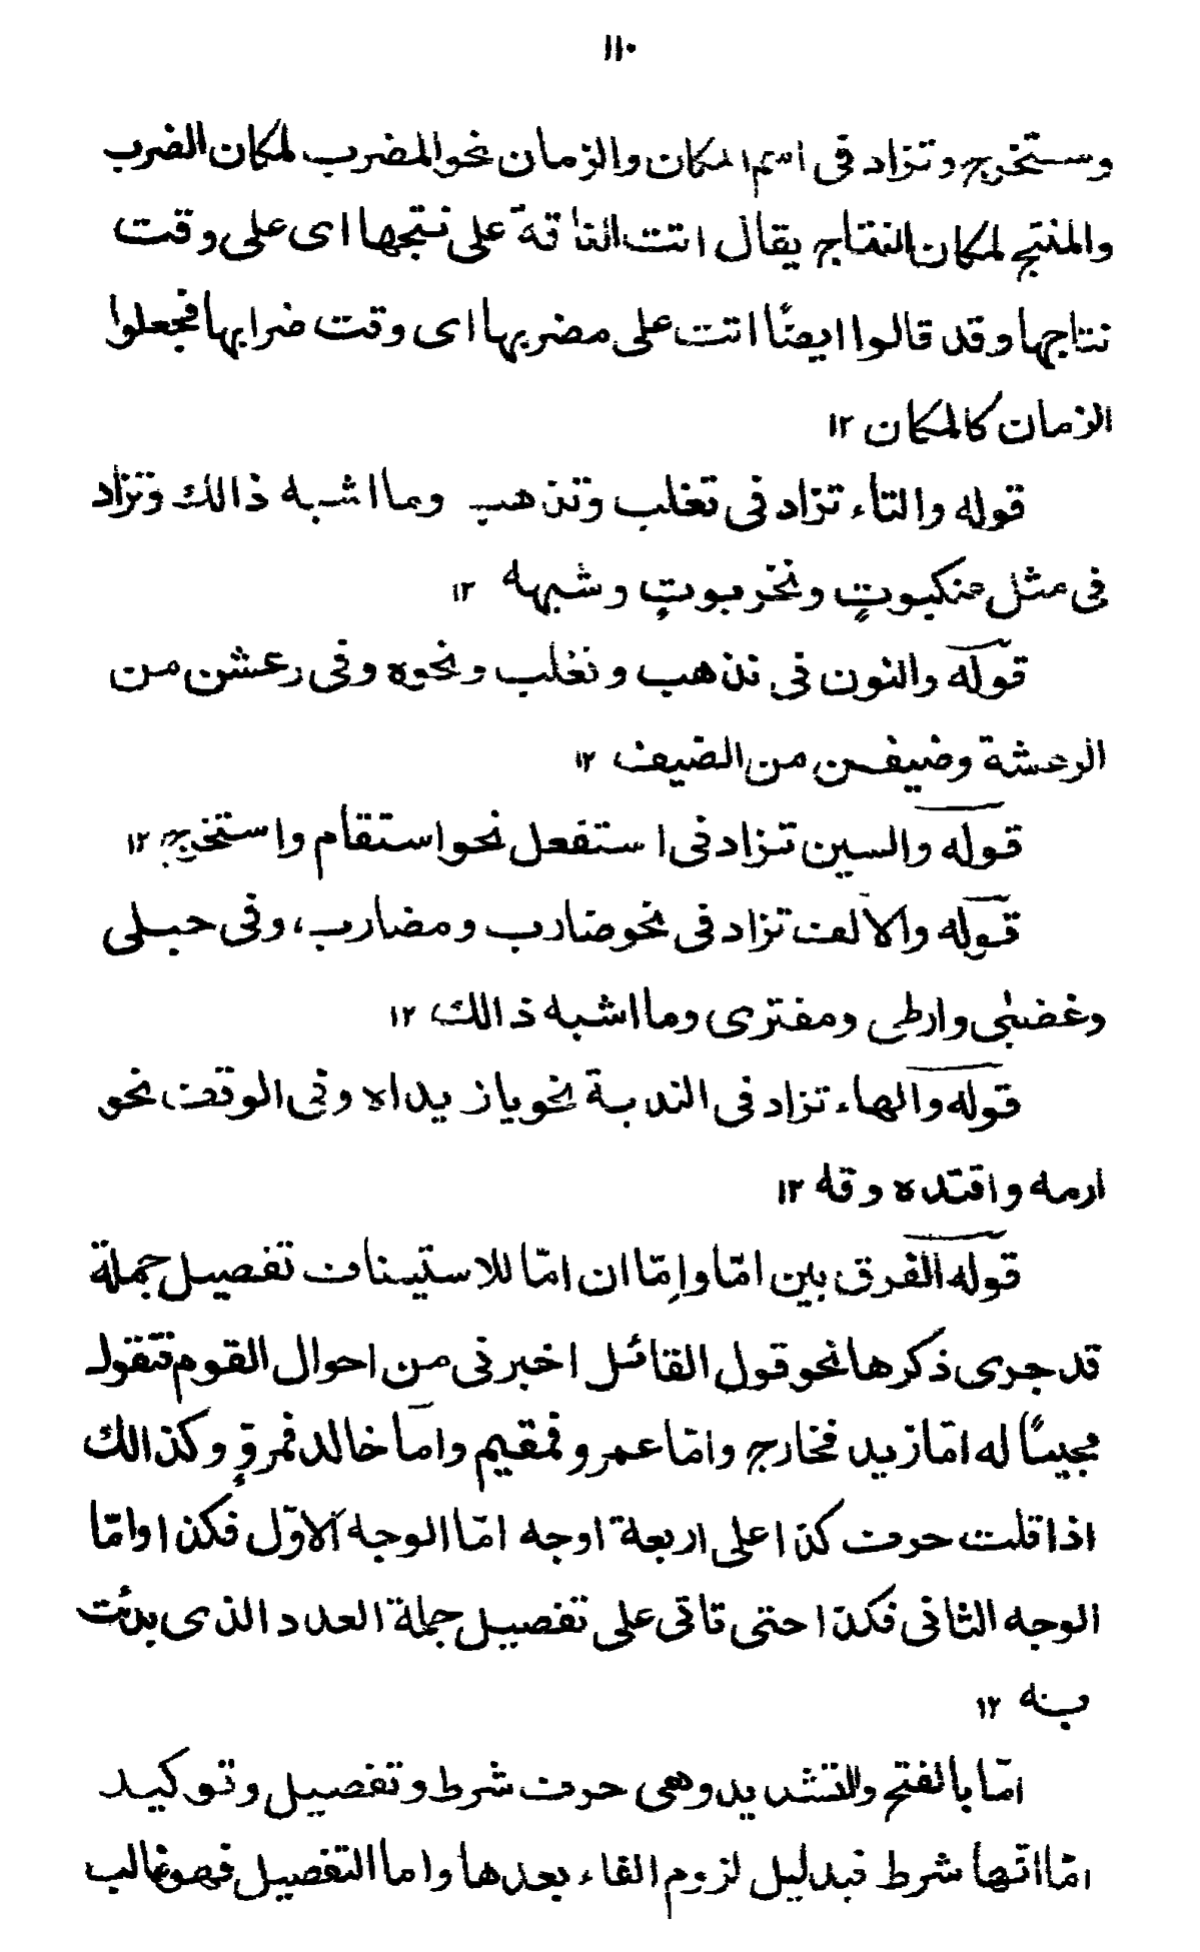 ١١٠
وستخرج وتزاد فى اسم المكان والزمان نحو المضرب لمكان الضرب
والمنتج لمكان النتاج يقال اتت الناقة على نتجها اى على وقت
نتاجها وقد قالوا ايضًا اتت على مضربها اى وقت ضرابها فجعلوا
الزمان كالمكان ١٢
قوله والتاء تزاد فى تغلب وتذهب وما اشبه ذالك وتزاد
فى مثل عنكبوتٍ ونخربوتٍ وشبهه ١٢
قوله والنون فى نذهب ونغلب ونحوه وفى رعشن من
الرعشة وضيفن من الضيف ١٢
قوله والسين تزاد فى استفعل نحو استقام واستخرج ١٢
قوله والالف تزاد فى نحو ضارب ومضارب، وفى حبلى
وغضبٰى وارطى ومفترى وما اشبه ذالك ١٢
قوله والهاء تزاد فى الندبة نحو يا زيداه وفى الوقف نحو
ارمه واقتده وقه ١٢
قوله الفرق بين امّا وإمّا ان امّا للاستيناف تفصيل جملة
قد جرى ذكرها نحو قول القائل اخبرنى من احوال القوم فتقول
مجيبًا له امّا زيد فخارج وامّا عمرو فمقيم وامّا خالد فمروٍ وكذالك
اذا قلت حرف كذا على اربعة اوجه امّا الوجه الاوّل فكذا وامّا
الوجه الثانى فكذا حتى تاتى على تفصيل جملة العدد الذى بدئت
بنه ١٢
امّا بالفتح والتشديد وهى حرف شرط وتفصيل وتوكيد
امّا انّها شرط فبدليل لزوم الفاء بعدها واما التفصيل فهو غالب